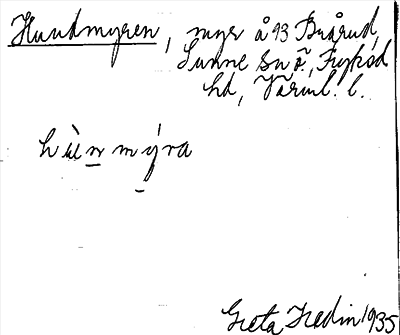 Hundmyren, myr å 93 Brårud,
Sunne sn Ö., Fryksd.
hd, Värml. l.
hùn mýra
Greta Hedin 1935